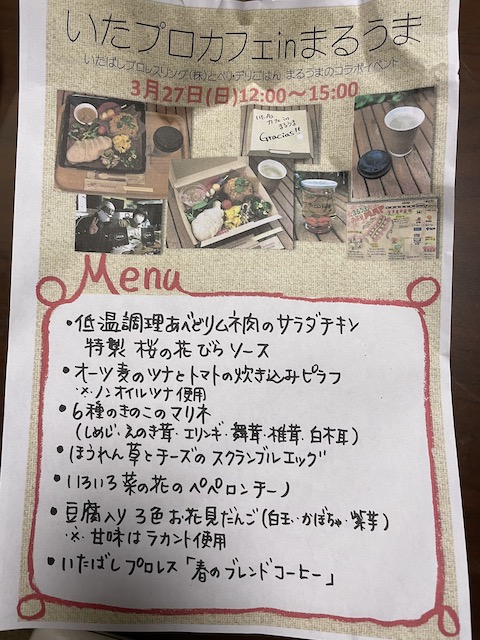 いたプロカフェinまるうま
いたばしプロレスリング(株)とベリ・デリごはん まるうまのコラボイベント
3月27日(日)12:00～15:00
いたプロ
カフェin
まるうま
Gracias!!
Menu
・低温調理あべどりムネ肉のサラダチキン
特製 桜の花びらソース
・オーツ麦のツナとトマトの炊き込みピラフ
※ノンオイルツナ使用
・6種のきのこのマリネ
(しめじ・えのき茸・エリンギ・舞茸・椎茸・白木耳)
・ほうれん草とチーズのスクランブルエッグ
・いろいろ菜の花のペペロンチーノ
・豆腐入り3色お花見だんご(白玉・かぼちゃ・紫芋)
※甘味はラカント使用
・いたばしプロレス「春のブレンドコーヒー」